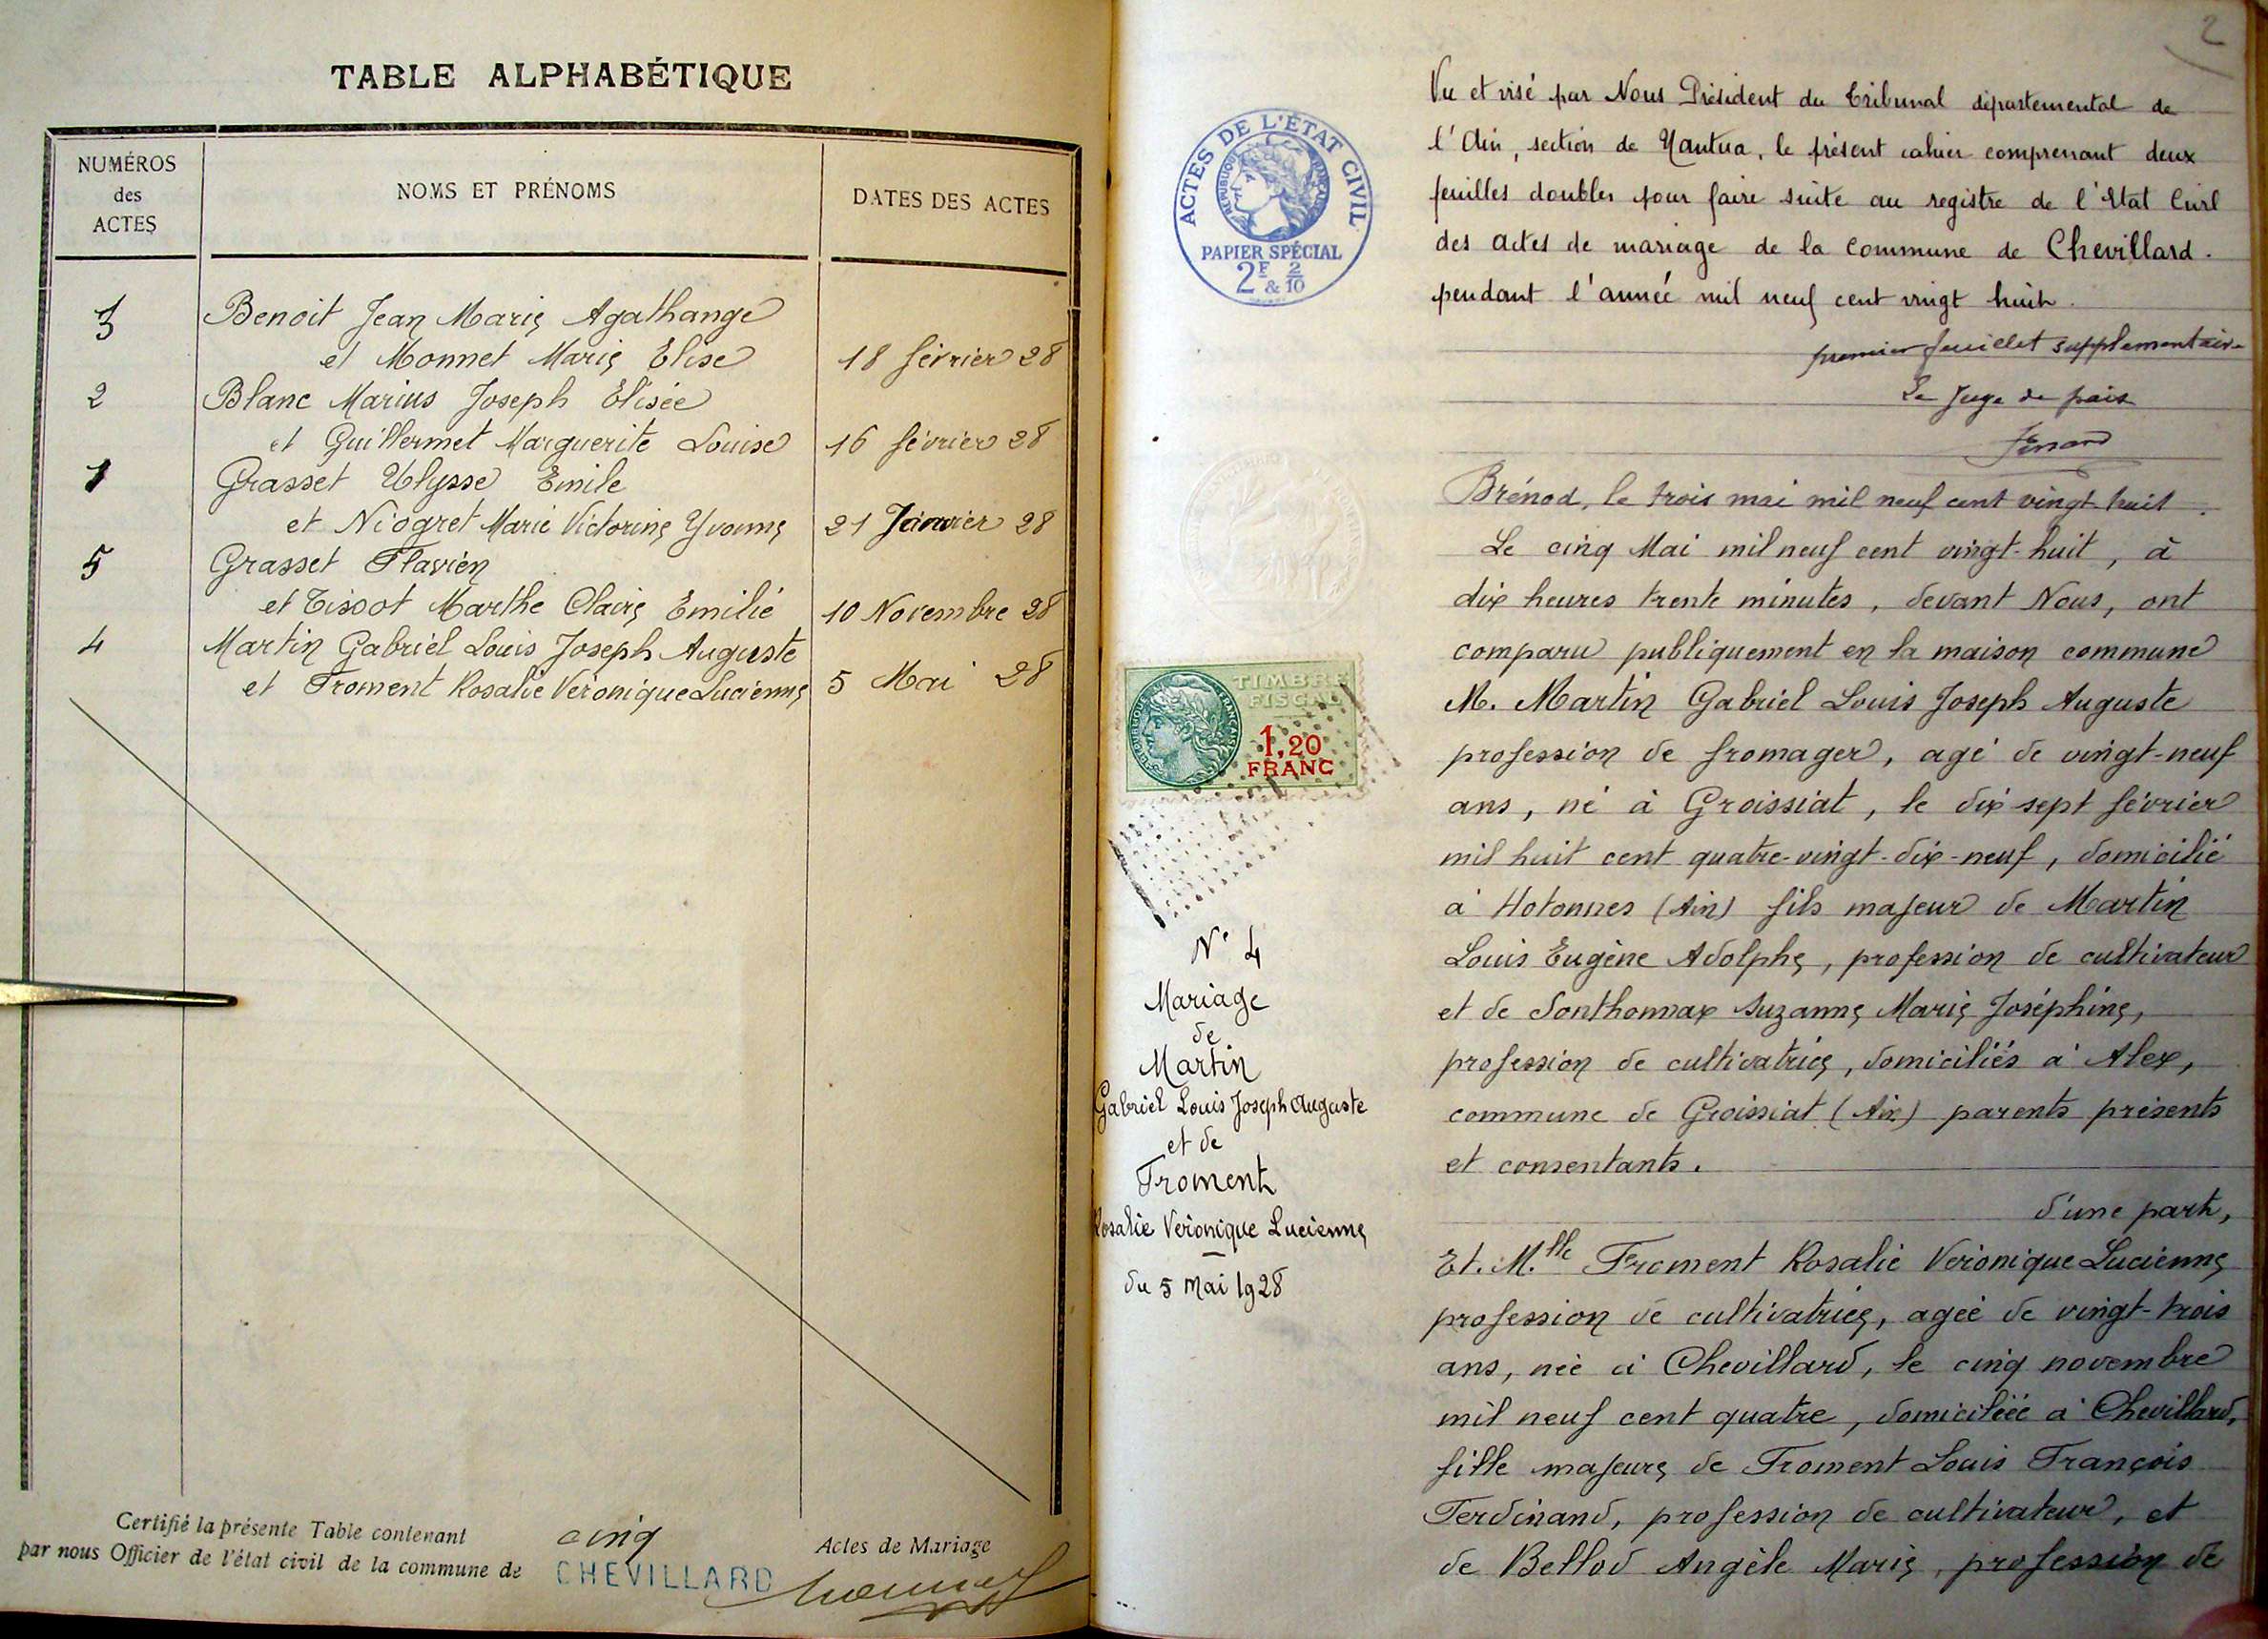 TABLE ALPHABÉTIQUE
NUMÉROS
des
ACTES
NOMS ET PRÉNOMS
DATES DES ACTES
3 Benoit Jean Marie Agathange
et Monnet Marie Elise 18 février 28
2 Blanc Marius Joseph Elisée
et Guillermet Marguerite Louise 16 février 28
1 Grasset Ulysse Emile
et Niogret Marie Victorine Yvonne 21 Janvier 28
5 Grasset Flavien
et Tissot Marthe Claire Emilie 10 Novembre 28
4 Martin Gabriel Louis Joseph Auguste
et Froment Rosalie Véronique Lucienne 5 Mai 28
Certifié la présente Table contenant cinq Actes de Mariage
par nous Officier de l'état civil de la commune de CHEVILLARD
2
ACTES DE L'ÉTAT CIVIL
RÉPUBLIQUE FRANÇAISE
PAPIER SPÉCIAL
2F & 2/10
Vu et visé par Nous Président du Tribunal départemental de
l'Ain, section de Nantua, le présent cahier comprenant deux
feuilles doubles pour faire suite au registre de l'Etat Civil
des actes de mariage de la commune de Chevillard.
pendant l'année mil neuf cent vingt huit.
premier feuillet supplémentaire
Le Juge de paix
Brénod, le trois mai mil neuf cent vingt-huit.
TIMBRE
FISCAL
1,20
FRANC
N° 4
Mariage
de
Martin
Gabriel Louis Joseph Auguste
et de
Froment
Rosalie Véronique Lucienne
du 5 Mai 1928
Le cinq Mai mil neuf cent vingt-huit, à
dix heures trente minutes, devant Nous, ont
comparu publiquement en la maison commune
M. Martin Gabriel Louis Joseph Auguste
profession de fromager, agé de vingt-neuf
ans, né à Groissiat, le dix sept février
mil huit cent quatre-vingt-dix-neuf, domicilié
à Hotonnes (Ain) fils majeur de Martin
Louis Eugène Adolphe, profession de cultivateur
et de Sonthonnax Suzanne Marie Joséphine,
profession de cultivatrice, domiciliés à Alex,
commune de Groissiat (Ain) parents présents
et consentants.
d'une part,
Et. M.lle Froment Rosalie Véronique Lucienne
profession de cultivatrice, agée de vingt-trois
ans, née à Chevillard, le cinq novembre
mil neuf cent quatre, domiciliée à Chevillard,
fille majeure de Froment Louis François
Ferdinand, profession de cultivateur, et
de Bellod Angèle Marie, profession de